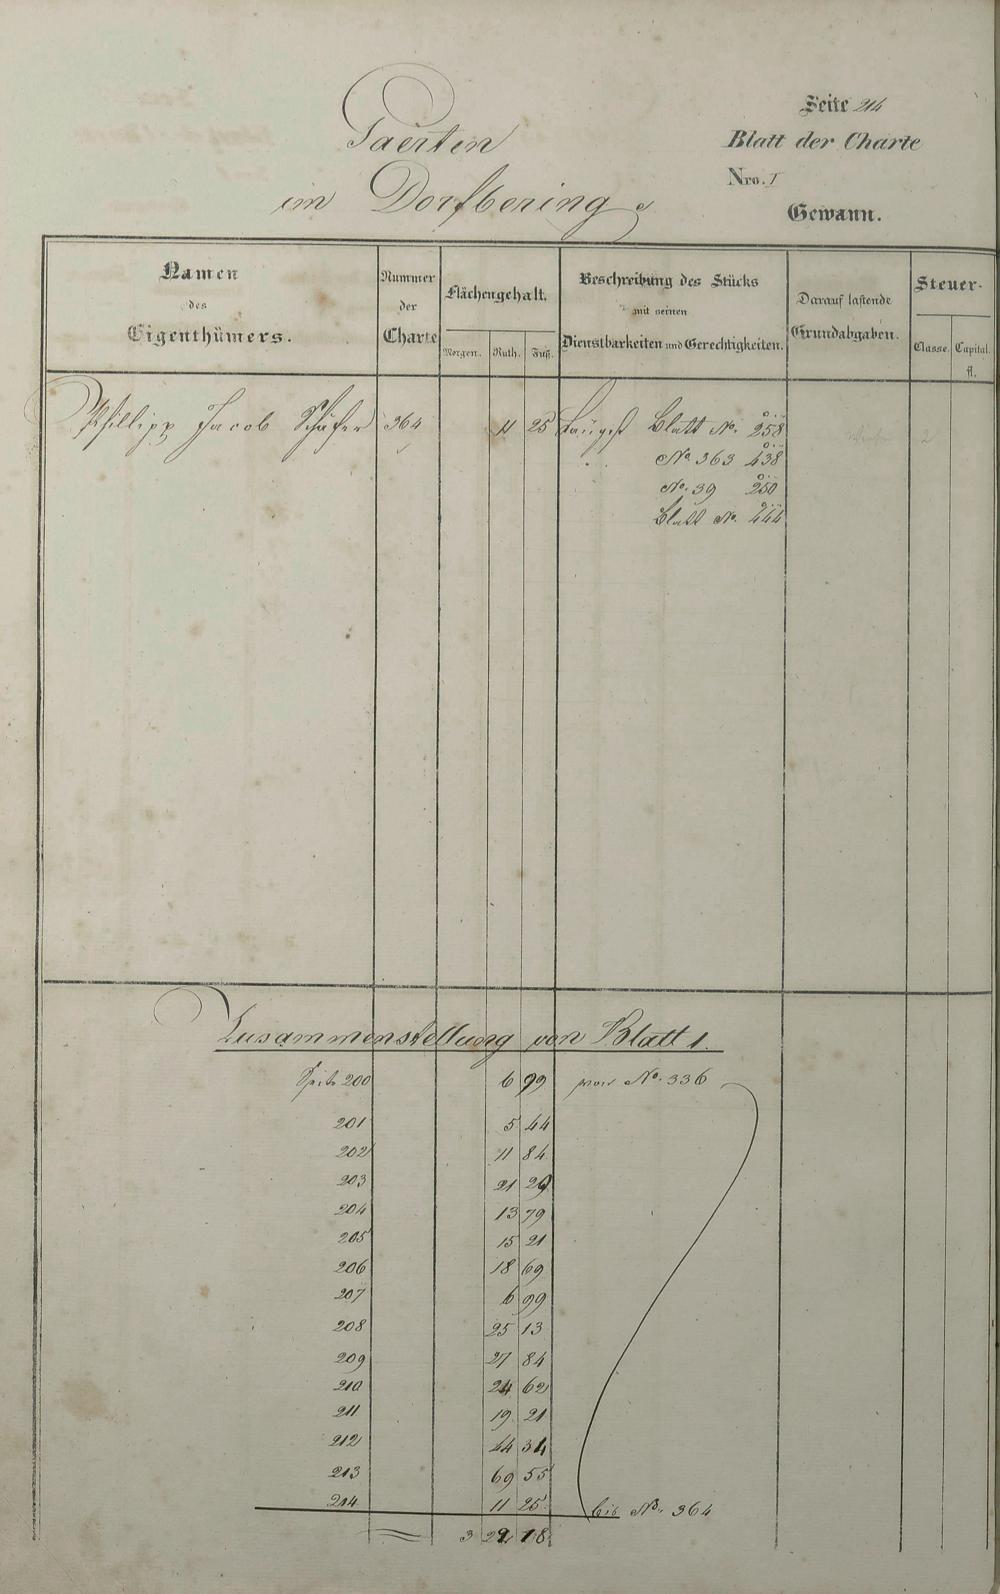 Seite 214
Gaerten
Blatt der Charte
im Dorfbering
Nro. I
Gewann.
Namen des Eigenthümers.
Nummer der Charte
Flächengehalt.
Morgen. Ruth. Fuß.
Beschreibung des Stücks mit seinen Dienstbarkeiten und Gerechtigkeiten.
Darauf lastende Grundabgaben.
Steuer-
Classe. Capital.
fl.
Phillipp Jacob Schäfer 364 11 25 Blatt No. 258
No. 363 438
No. 39 250
Blatt No. 444
Zusammenstellung von Blatt 1.
Seite 200 6 99 von No. 336
201 5 44
202 11 84
203 21 29
204 13 79
205 15 21
206 18 69
207 6 99
208 25 13
209 27 84
210 24 62
211 19 21
212 44 34
213 69 55
214 11 25 bis No. 364
3 18